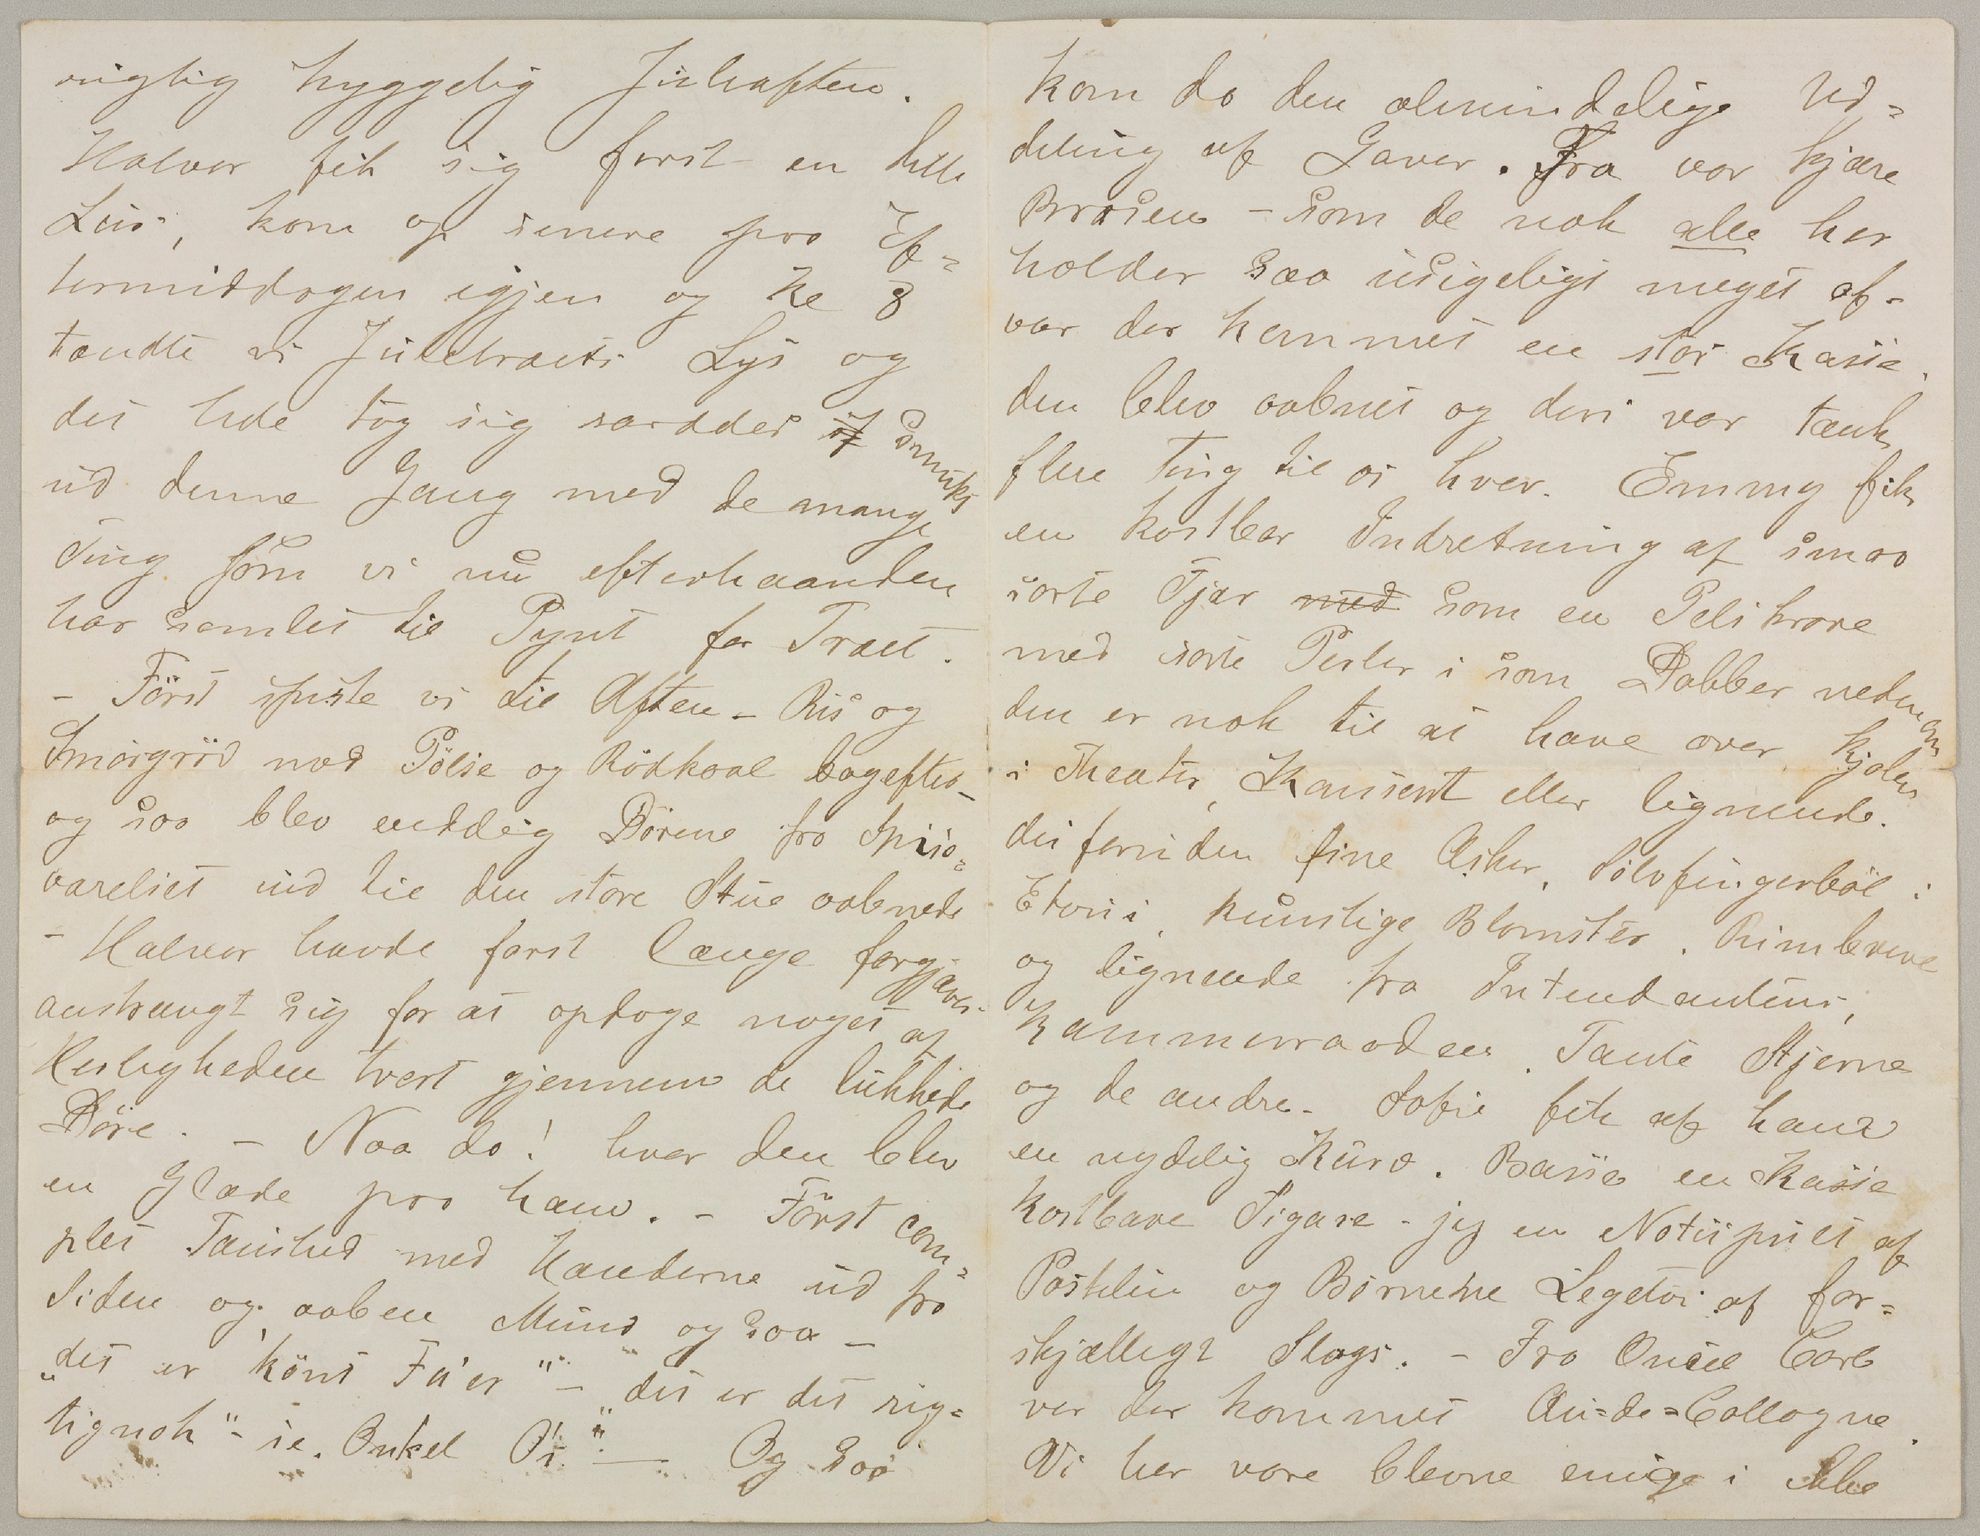 rigtig hyggelig Juleaften.
Halvor fik sig først en lille
Luis, kom op senere paa Ef=
termiddagen igjen og Kl 8
tændte vi Juletræets Lys og
det hele tog sig særdeles smukt
ud denne Gang med de mange
Ting som vi nu efterhaanden
har samlet til Pynt for Træet.
– Först spiste vi til Aften – Ris og
Smörgröd med Pölse og Rödkaal bagefter –
og saa blev endelig Dörene fra Spise=
værelset ind til den store Stue aabnede
– Halvor havde først længe forgjæves
anstrengt sig for at opdage noget af
Herligheden tvert gjennem de lukkede
Döre. – Naa da! hvor den blev
en Glæde paa ham. – Först com=
plet Taushed med Hænderne ud fra
Siden og aaben Mund og saa –
"det er könt Fa'er" – "det er det rig=
tignok" – se. Onkel O's" — Og saa
kom da den almindelige Ud=
deling af Gaver. Fra vor kjære
Brosen – som de nok alle her
holder saa usigeligt meget af –
var der kommet en stor Kasse,
den blev aabnet og deri var tænk
flere Ting til os hver. Emmy fik
en kostbar Indretning af smaa
sorte Fjær med som en Pelskrave
med sorte Perler i som Dabber nedenom
den er nok til at have over Kjolen
i Theater, Konsert eller lignende.
desforuden fine Æsker, Sölvfingerböl i
Eturi, kunstige Blomster, Rimbreve
og lignende fra Intendanten,
Kammerraaden, Tante Stjerne
og de andre – Sofie fik af ham
en nydelig Kurv. Basse en Kasse
kostbare Sigare – jeg en Notispult af
Postelin og Börnene Legetöi af for=
skjælligt Slags. – Fra Onkel Carl
var der kommet Au=de=Collogne.
Vi her vare blevne enige i ikke